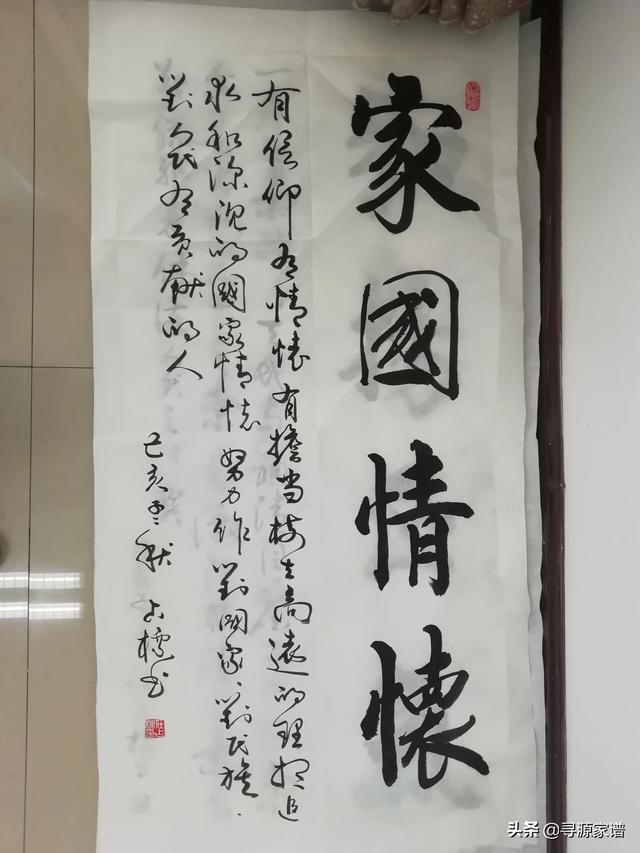 家國情懷
有信仰有情懷有擔当树立高遠的理想追
求和深沉的國家情懷努力作對國家、對民族、
對人民有貢献的人
己亥秋
书
头条 @寻源家谱